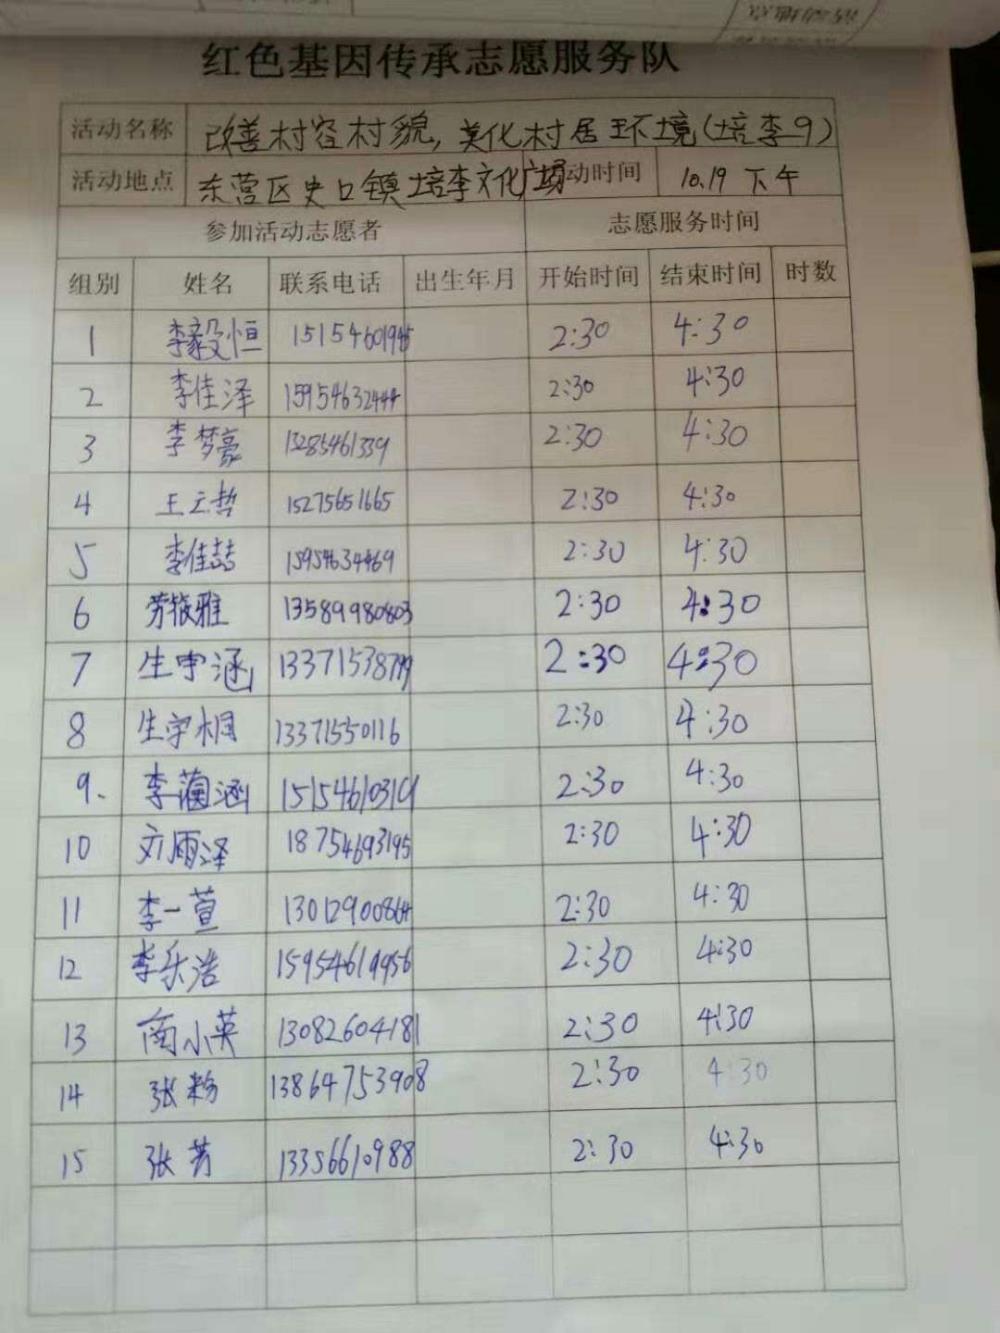 红色基因传承志愿服务队
活动名称 改善村容村貌，美化村居环境（培李9）
活动地点 东营区史口镇培李文化广场 动时间 10.19 下午
参加活动志愿者 志愿服务时间
组别 姓名 联系电话 出生年月 开始时间 结束时间 时数
1 李毅恒 2:30 4:30
2 李佳泽 2:30 4:30
3 李梦豪 13285461339 2:30 4:30
4 王立哲 15275651665 2:30 4:30
5 李佳喆 15954634469 2:30 4:30
6 13589980803 2:30 4:30
7 生宇涵 2:30 4:30
8 生宇桐 13371550116 2:30 4:30
9. 李蔺涵 2:30 4:30
10 刘雨泽 18754693195 2:30 4:30
11 李一萱 13012900864 2:30 4:30
12 李乐浩 15954619956 2:30 4:30
13 南小英 13082604181 2:30 4:30
14 张粉 13864753908 2:30 4:30
15 张芳 13356610988 2:30 4:30